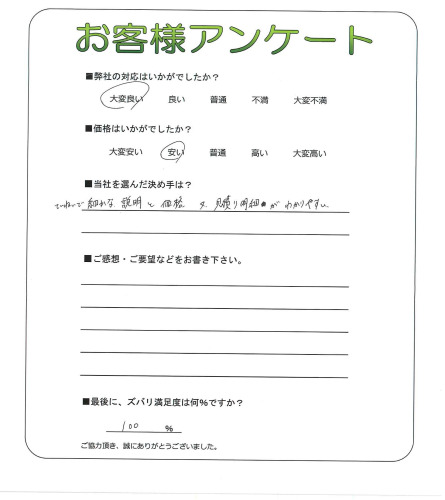 お客様アンケート
■弊社の対応はいかがでしたか?
大変良い 良い 普通 不満 大変不満
■価格はいかがでしたか?
大変安い 安い 普通 高い 大変高い
■当社を選んだ決め手は?
説明と価格 見積り明細がわかりやすい
■ご感想・ご要望などをお書き下さい。
■最後に、ズバリ満足度は何%ですか?
100 %
ご協力頂き、誠にありがとうございました。